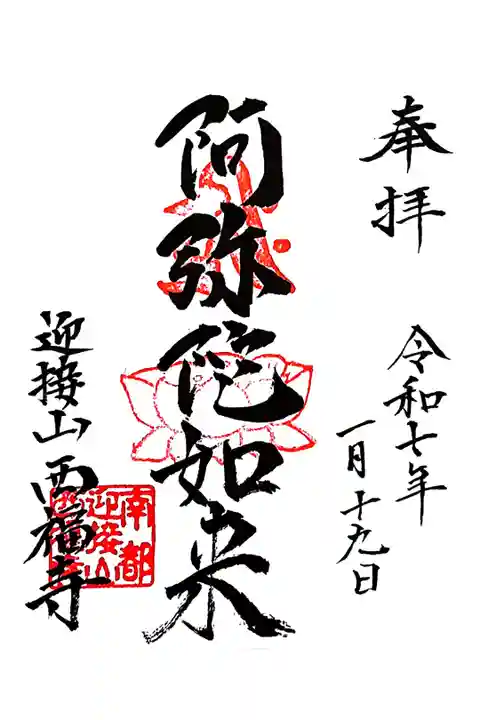 奉拝
令和七年
一月十九日
阿弥陀如来
迎接山西福寺
南都
迎接山